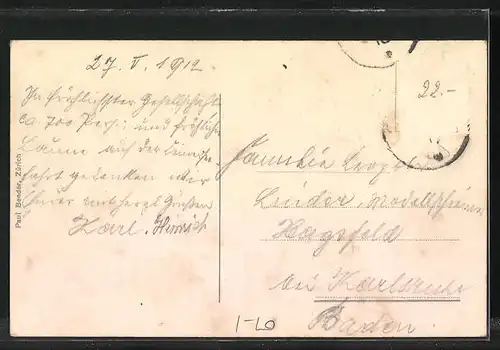 27. V. 1912.
In fröhlichster Gesellschaft
ca. 700 Pers. und fröhlicher
Laune auf der
fahrt gedenken wir
Euer mit herzl. Grüßen
Karl. Heinrich
Paul Bender, Zürich
22.-
Familie
Linder, Modellschreiner
Hagsfeld
bei Karlsruhe
Baden
1-60